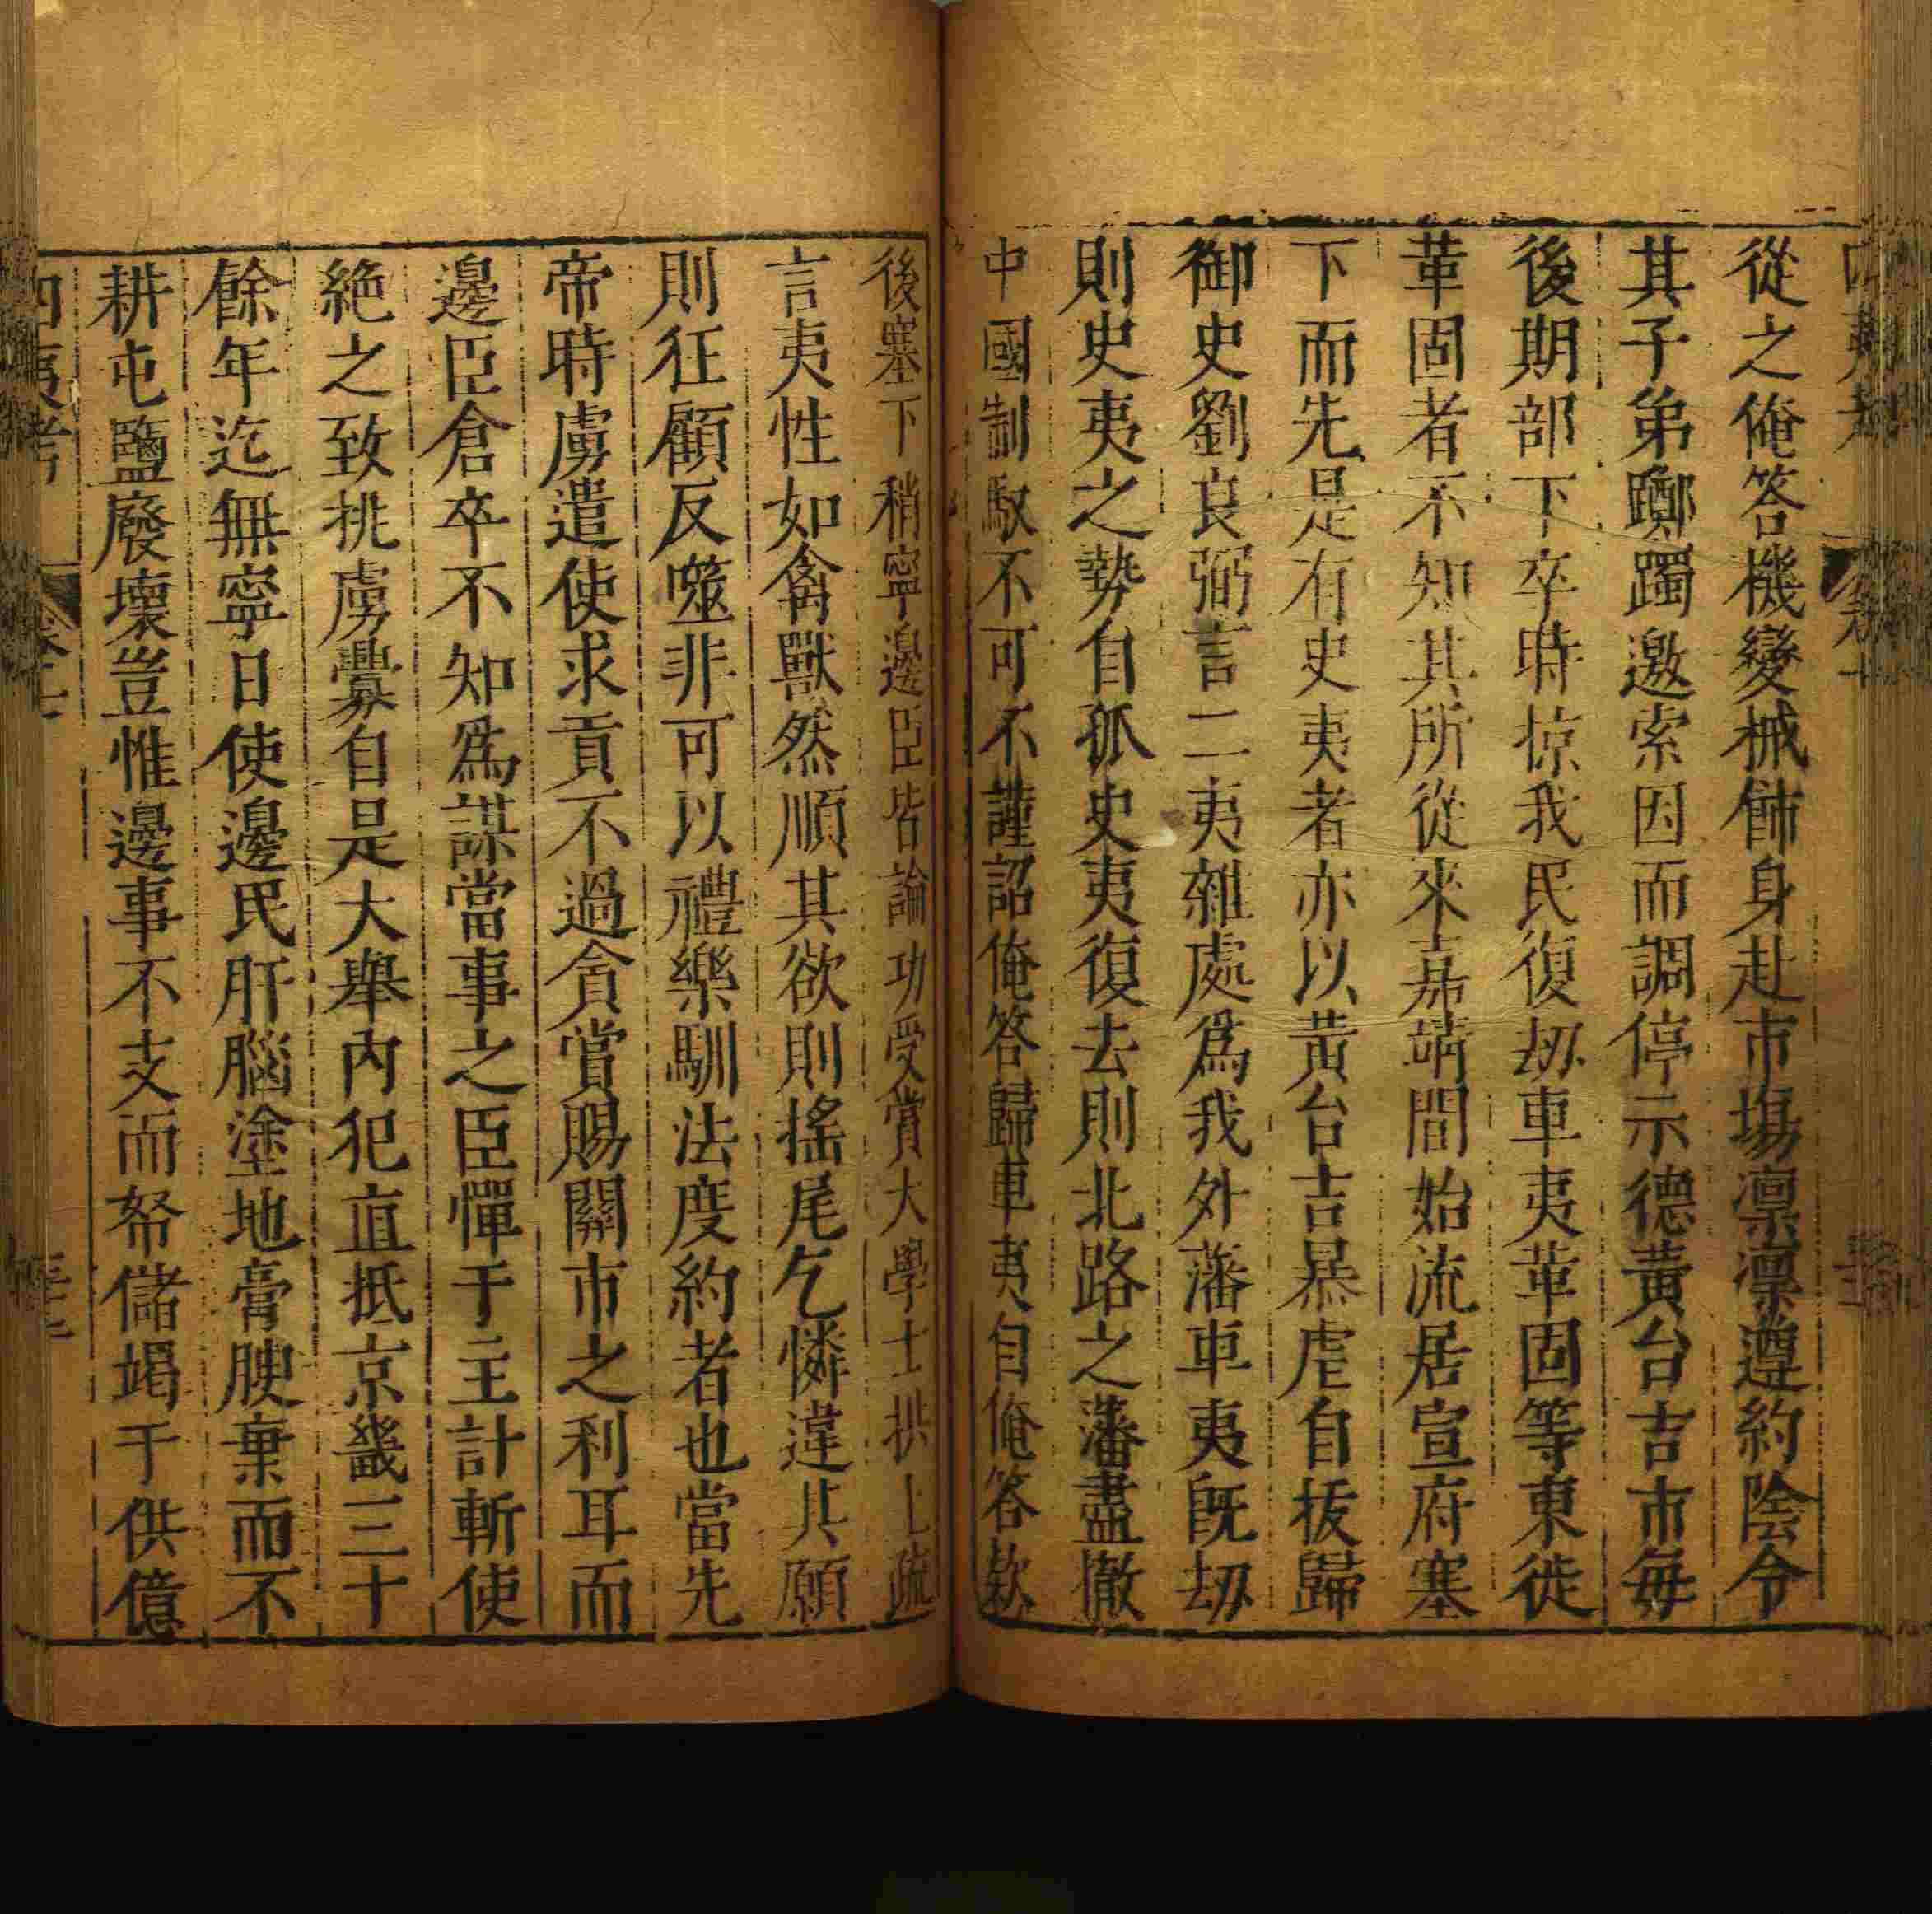 從之俺答機變械飾身赴市場凛凛遵約陰令
其子弟躑躅邀索因而調停示德黃台吉市每
後期部下卒時掠我民復刼車夷革固等東徙
革固者不知其所從來嘉靖間始流居宣府塞
下而先是有史夷者亦以黃台吉暴虐自拔歸
御史劉良弼言二夷雜處爲我外藩車夷旣刼
則史夷之勢自孤史夷復去則北路之藩盡撤
中國制馭不可不謹詔俺答歸車夷自俺答欵
後塞下稍寧邊臣皆論功受賞大學士拱上疏
言夷性如禽獸然順其欲則搖尾乞憐違其願
則狂顧反噬非可以禮樂馴法度約者也當先
帝時虜遣使求貢不過貪賞賜關市之利耳而
邊臣倉卒不知爲謀當事之臣憚于主計斬使
絶之致挑虜釁自是大舉內犯直抵京畿三十
餘年迄無寧日使邊民肝腦塗地膏腴棄而不
耕屯鹽廢壞豈惟邊事不支而帑儲竭于供億
四夷考